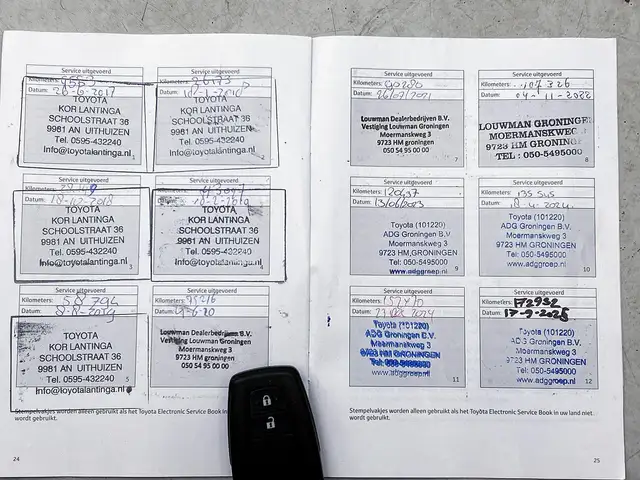 Service uitgevoerd
Kilometers:
Datum: 26-6-2017
TOYOTA
KOR LANTINGA
SCHOOLSTRAAT 36
9981 AN UITHUIZEN
Tel. 0595-432240
Info@toyotalantinga.nl
1
Service uitgevoerd
Kilometers: 26173
Datum:
TOYOTA
KOR LANTINGA
SCHOOLSTRAAT 36
9981 AN UITHUIZEN
Tel. 0595-432240
Info@toyotalantinga.nl
2
Service uitgevoerd
Kilometers:
Datum: 18-12-2018
TOYOTA
KOR LANTINGA
SCHOOLSTRAAT 36
9981 AN UITHUIZEN
Tel. 0595-432240
Info@toyotalantinga.nl
3
Service uitgevoerd
Kilometers:
Datum:
TOYOTA
KOR LANTINGA
SCHOOLSTRAAT 36
9981 AN UITHUIZEN
Tel. 0595-432240
Info@toyotalantinga.nl
4
Service uitgevoerd
Kilometers: 58794
Datum:
TOYOTA
KOR LANTINGA
SCHOOLSTRAAT 36
9981 AN UITHUIZEN
Tel. 0595-432240
Info@toyotalantinga.nl
5
Service uitgevoerd
Kilometers: 75216
Datum:
Louwman Dealerbedrijven B.V.
Vestiging Louwman Groningen
Moermanskweg 3
9723 HM groningen
050 54 95 00 00
Stempelvakjes worden alleen gebruikt als het Toyota Electronic Service Book in
wordt gebruikt.
24
Service uitgevoerd
Kilometers: 90280
Datum: 26/07/2021
Louwman Dealerbedrijven B.V.
Vestiging Louwman Groningen
Moermanskweg 3
9723 HM Groningen
050 54 95 00 00
7
Service uitgevoerd
Kilometers: 107326
Datum: 04-11-2022
LOUWMAN GRONINGEN
MOERMANSKWEG
9723 HM GRONINGEN
TEL: 050-5495000
8
Service uitgevoerd
Kilometers: 120637
Datum: 13/06/2023
Toyota (101220)
ADG Groningen B.V.
Moermanskweg 3
9723 HM GRONINGEN
Tel: 050-5495000
www.adggroep.nl
9
Service uitgevoerd
Kilometers: 135
Datum: 18-4-2024
Toyota (101220)
ADG Groningen B.V.
Moermanskweg 3
9723 HM GRONINGEN
Tel: 050-5495000
www.adggroep.nl
10
Service uitgevoerd
Kilometers:
Datum: 2024
Toyota (101220)
ADG Groningen B.V.
Moermanskweg 3
9723 HM GRONINGEN
Tel: 050-5495000
www.adggroep.nl
11
Service uitgevoerd
Kilometers: 172932
Datum: 17-9-2025
Toyota (101220)
ADG Groningen B.V.
Moermanskweg 3
9723 HM GRONINGEN
Tel: 050-5495000
www.adggroep.nl
12
Stempelvakjes worden alleen gebruikt als het Toyota Electronic Service Book in uw land niet
wordt gebruikt.
25